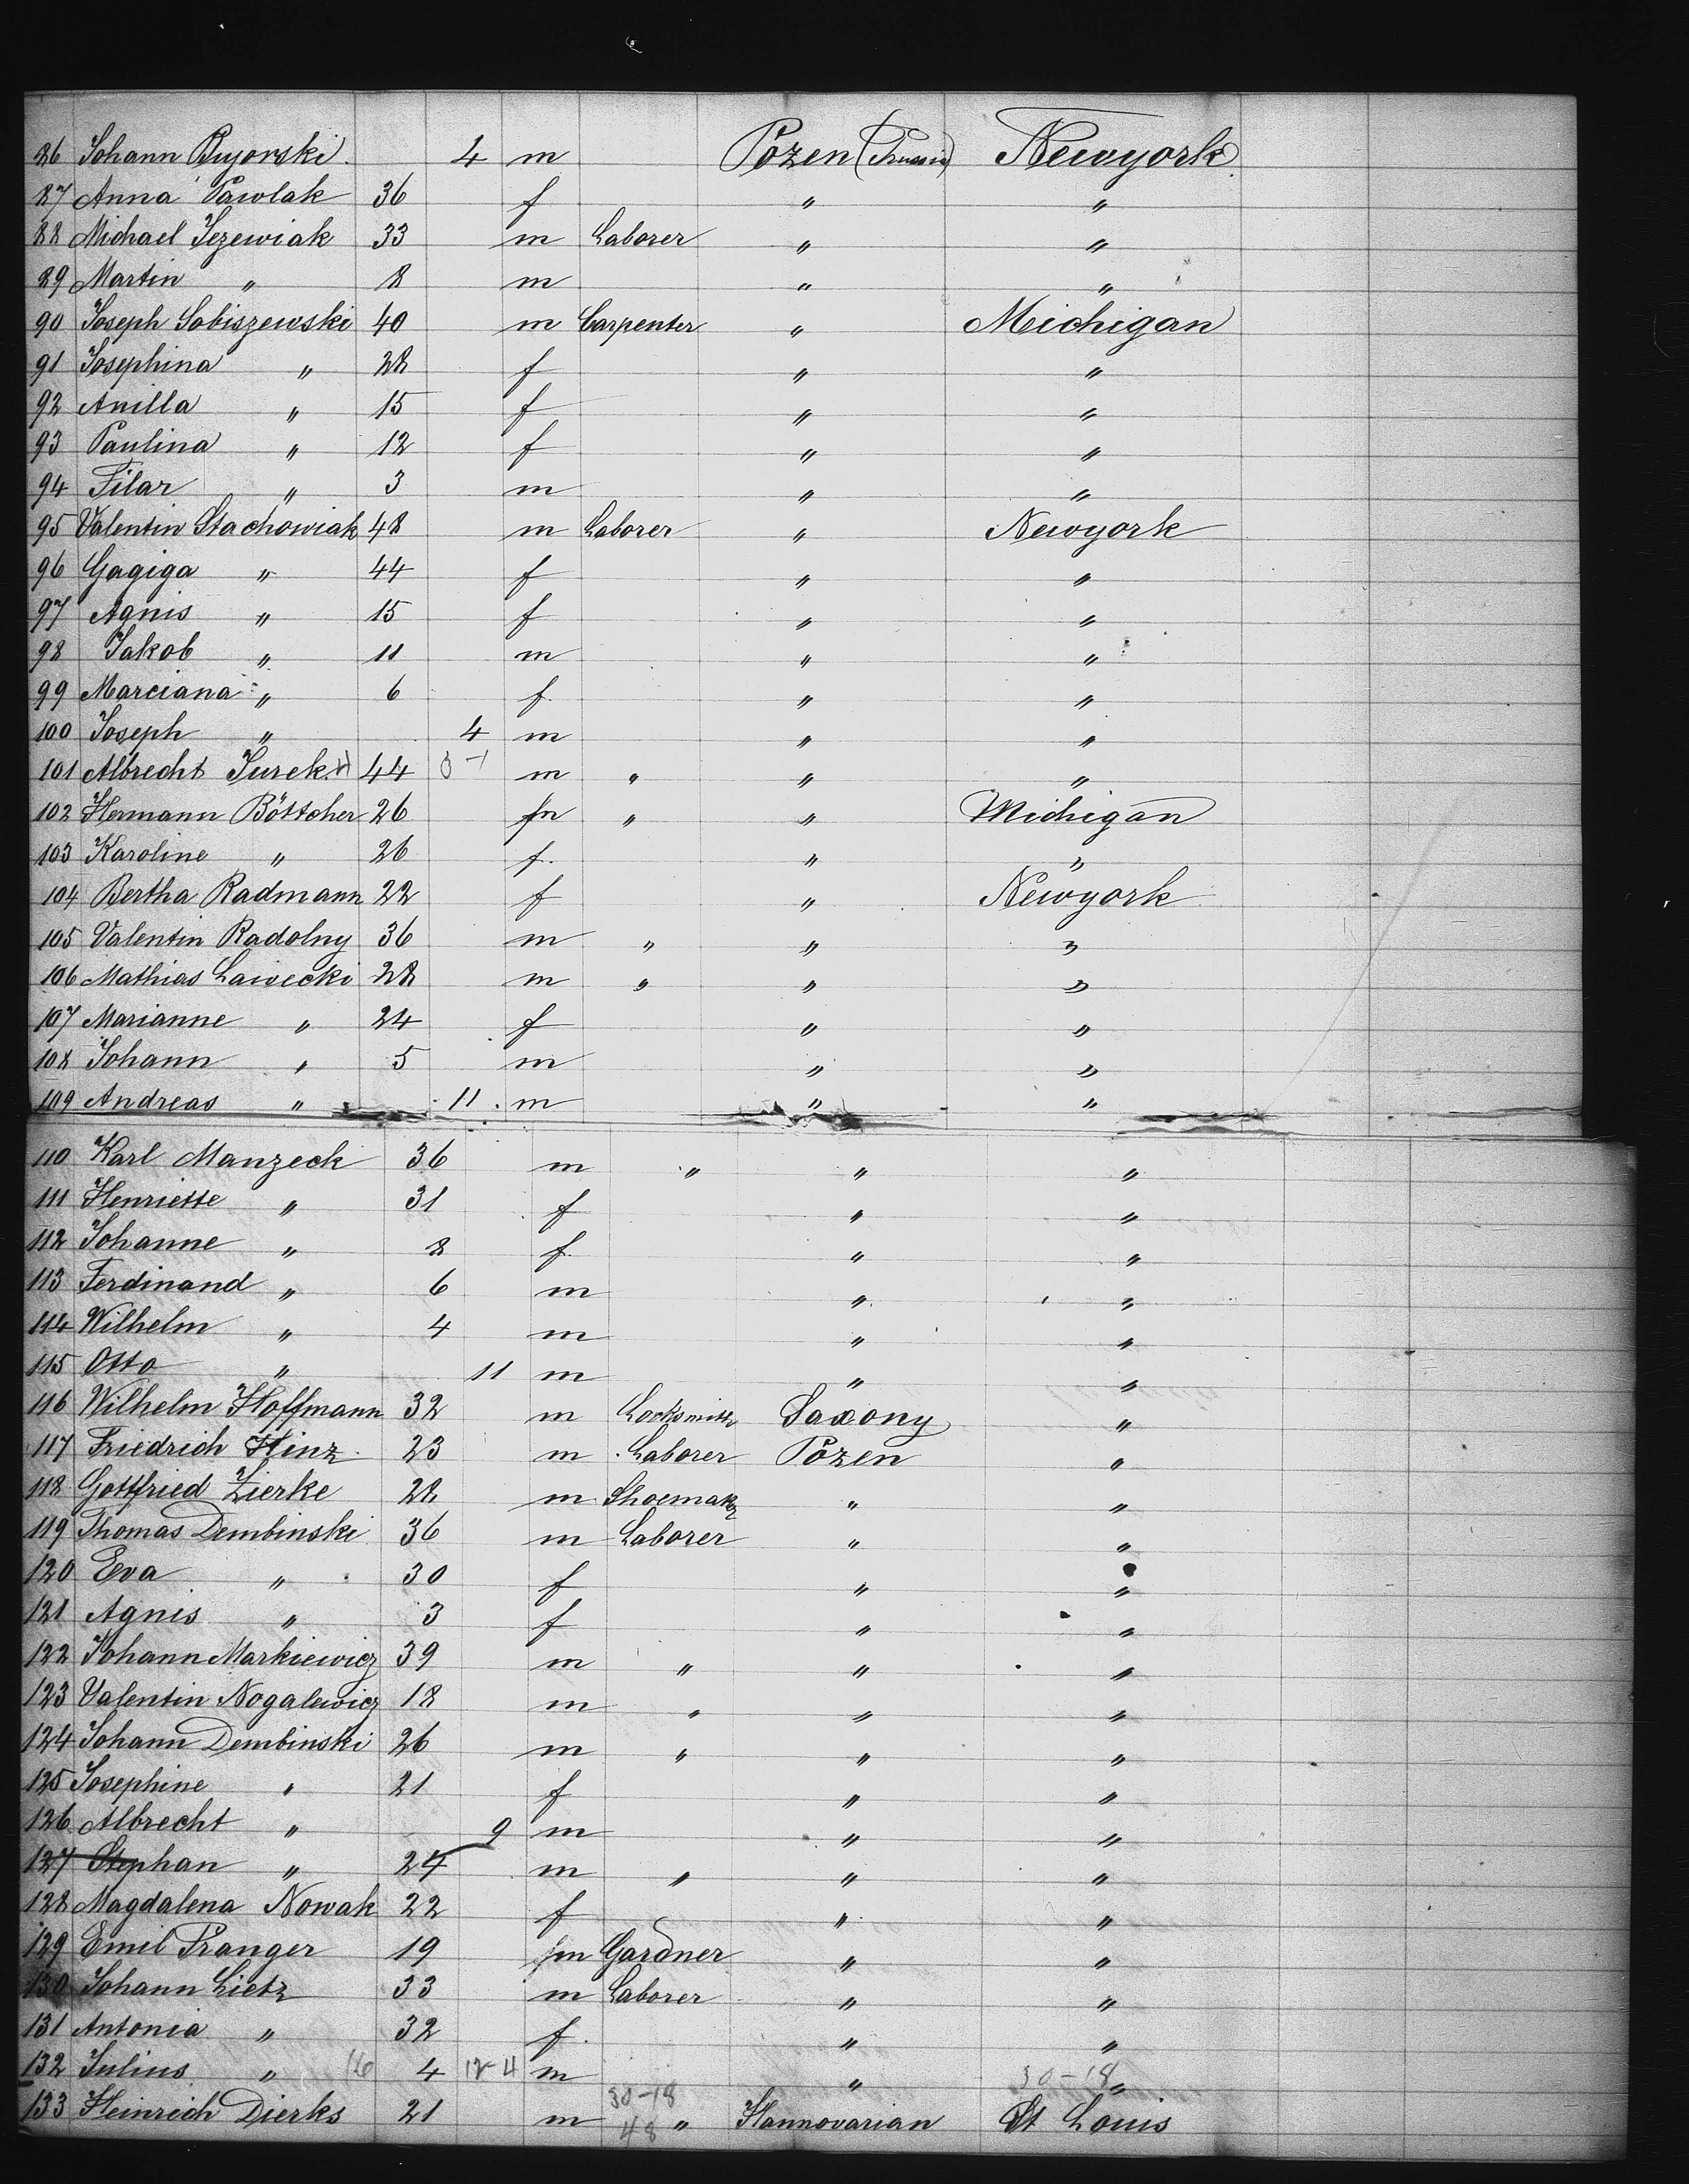 86 Johann Bujorski 4 m Pozen (Prussia) Newyork
87 Anna Pawlak 36 f " "
88 Michael Jezewiak 33 m Laborer " "
89 Martin " 8 m " "
90 Joseph Sobiszewski 40 m Carpenter " Michigan
91 Josephina " 28 f " "
92 Anilla " 15 f " "
93 Paulina " 12 f " "
94 Filar " 3 m " "
95 Valentin Stachowiak 48 m Laborer " Newyork
96 Gagiga " 44 f " "
97 Agnis " 15 f " "
98 Jakob " 11 m " "
99 Marciana " 6 f " "
100 Joseph " 4 m " "
101 Albrecht Jurek 44 m " " "
102 Hermann Böttcher 26 m " " Michigan
103 Karoline " 26 f. " "
104 Bertha Radmann 22 f " Newyork
105 Valentin Radolny 36 m " " "
106 Mathias Lawecki 28 m " " "
107 Marianne " 24 f " "
108 Johann " 5 m " "
109 Andreas " 11. m " "
110 Karl Manzeck 36 m " " "
111 Henriette " 31 f " "
112 Johanne " 8 f " "
113 Ferdinand " 6 m " "
114 Wilhelm " 4 m " "
115 Otto " 11 m " "
116 Wilhelm Hoffmann 32 m Locksmith Saxony "
117 Friedrich Hinz 23 m Laborer Pozen "
118 Gottfried Zierke 28 m Shoemaker " "
119 Thomas Dembinski 36 m Laborer " "
120 Eva " 30 f " "
121 Agnis " 3 f " "
122 Johann Markiewicz 39 m " " "
123 Valentin Nogalewicz 18 m " " "
124 Johann Dembinski 26 m " " "
125 Josephine " 21 f " "
126 Albrecht " 9 m " "
127 Stephan " 24 m " " "
128 Magdalena Nowak 22 f " "
129 Emil Pranger 19 m Gardner " "
130 Johann Lietz 33 m Laborer " "
131 Antonia " 32 f. " "
132 Julius " 16 4 12-4 m " 30-18 "
30-18
133 Heinrich Dierks 21 m " Hannovarian St Louis
48